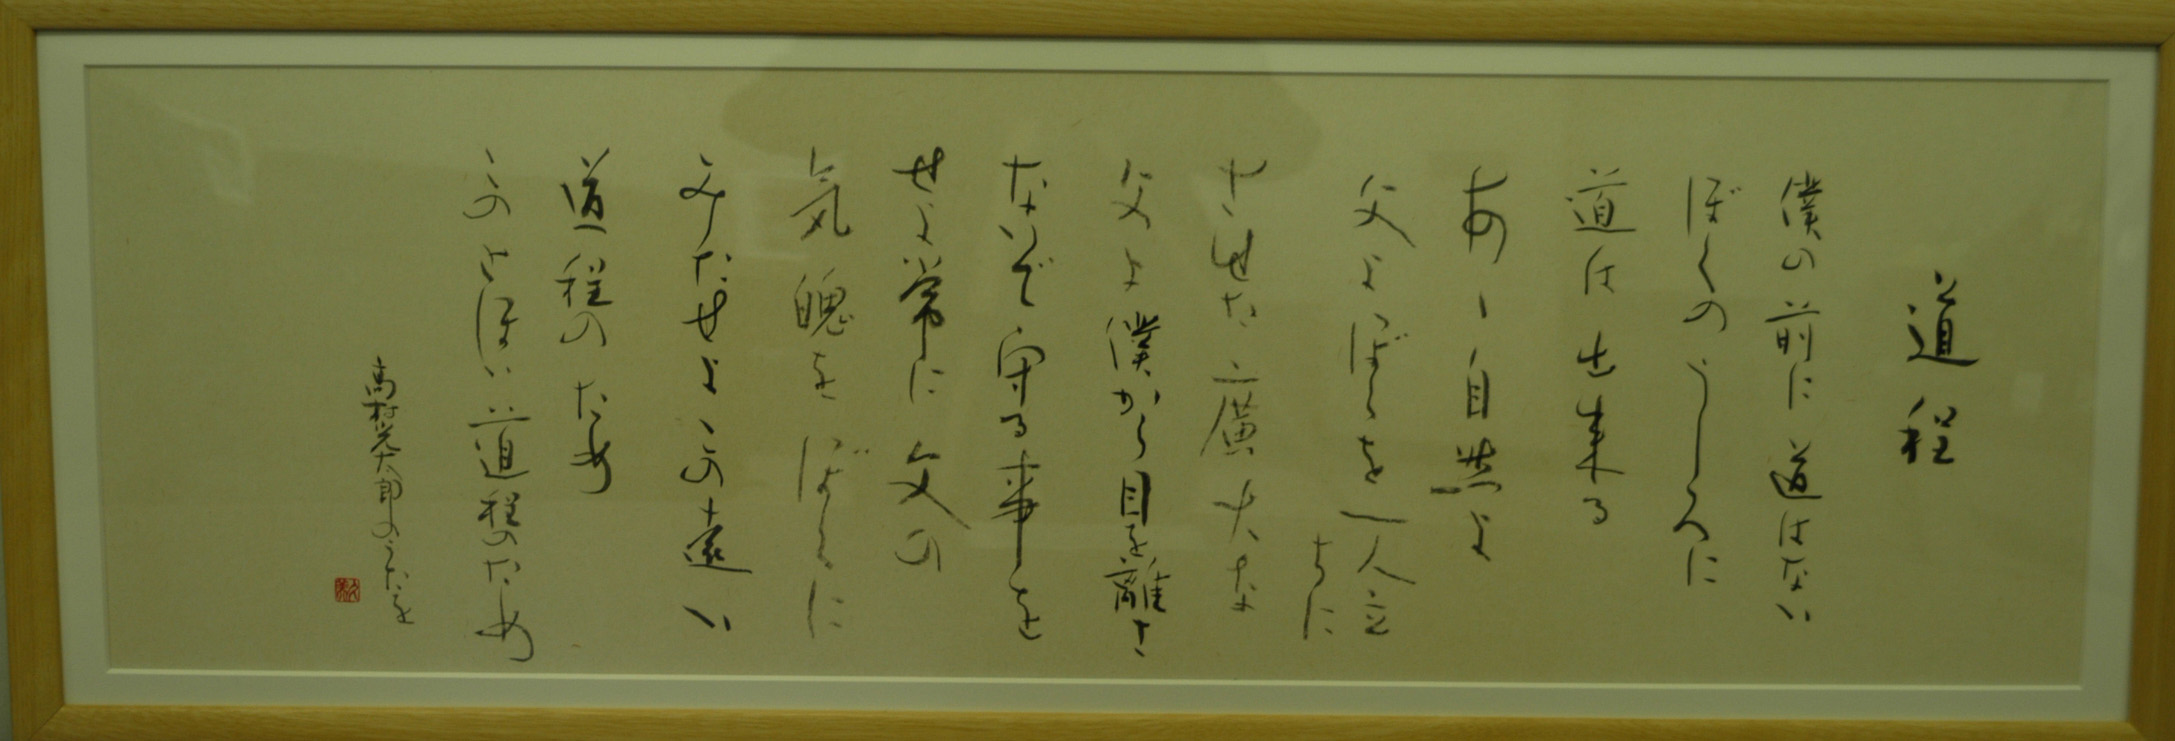 道程
僕の前に道はない
ぼくのうしろに
道は出来る
あゝ自然よ
父よぼくを一人立
ちに
させた廣大な
父よ僕から目を離さ
ないで守る事を
せよ常に父の
気魄をぼくに
みたせよこの遠い
道程のため
このとほい道程のため
高村光太郎のうたを